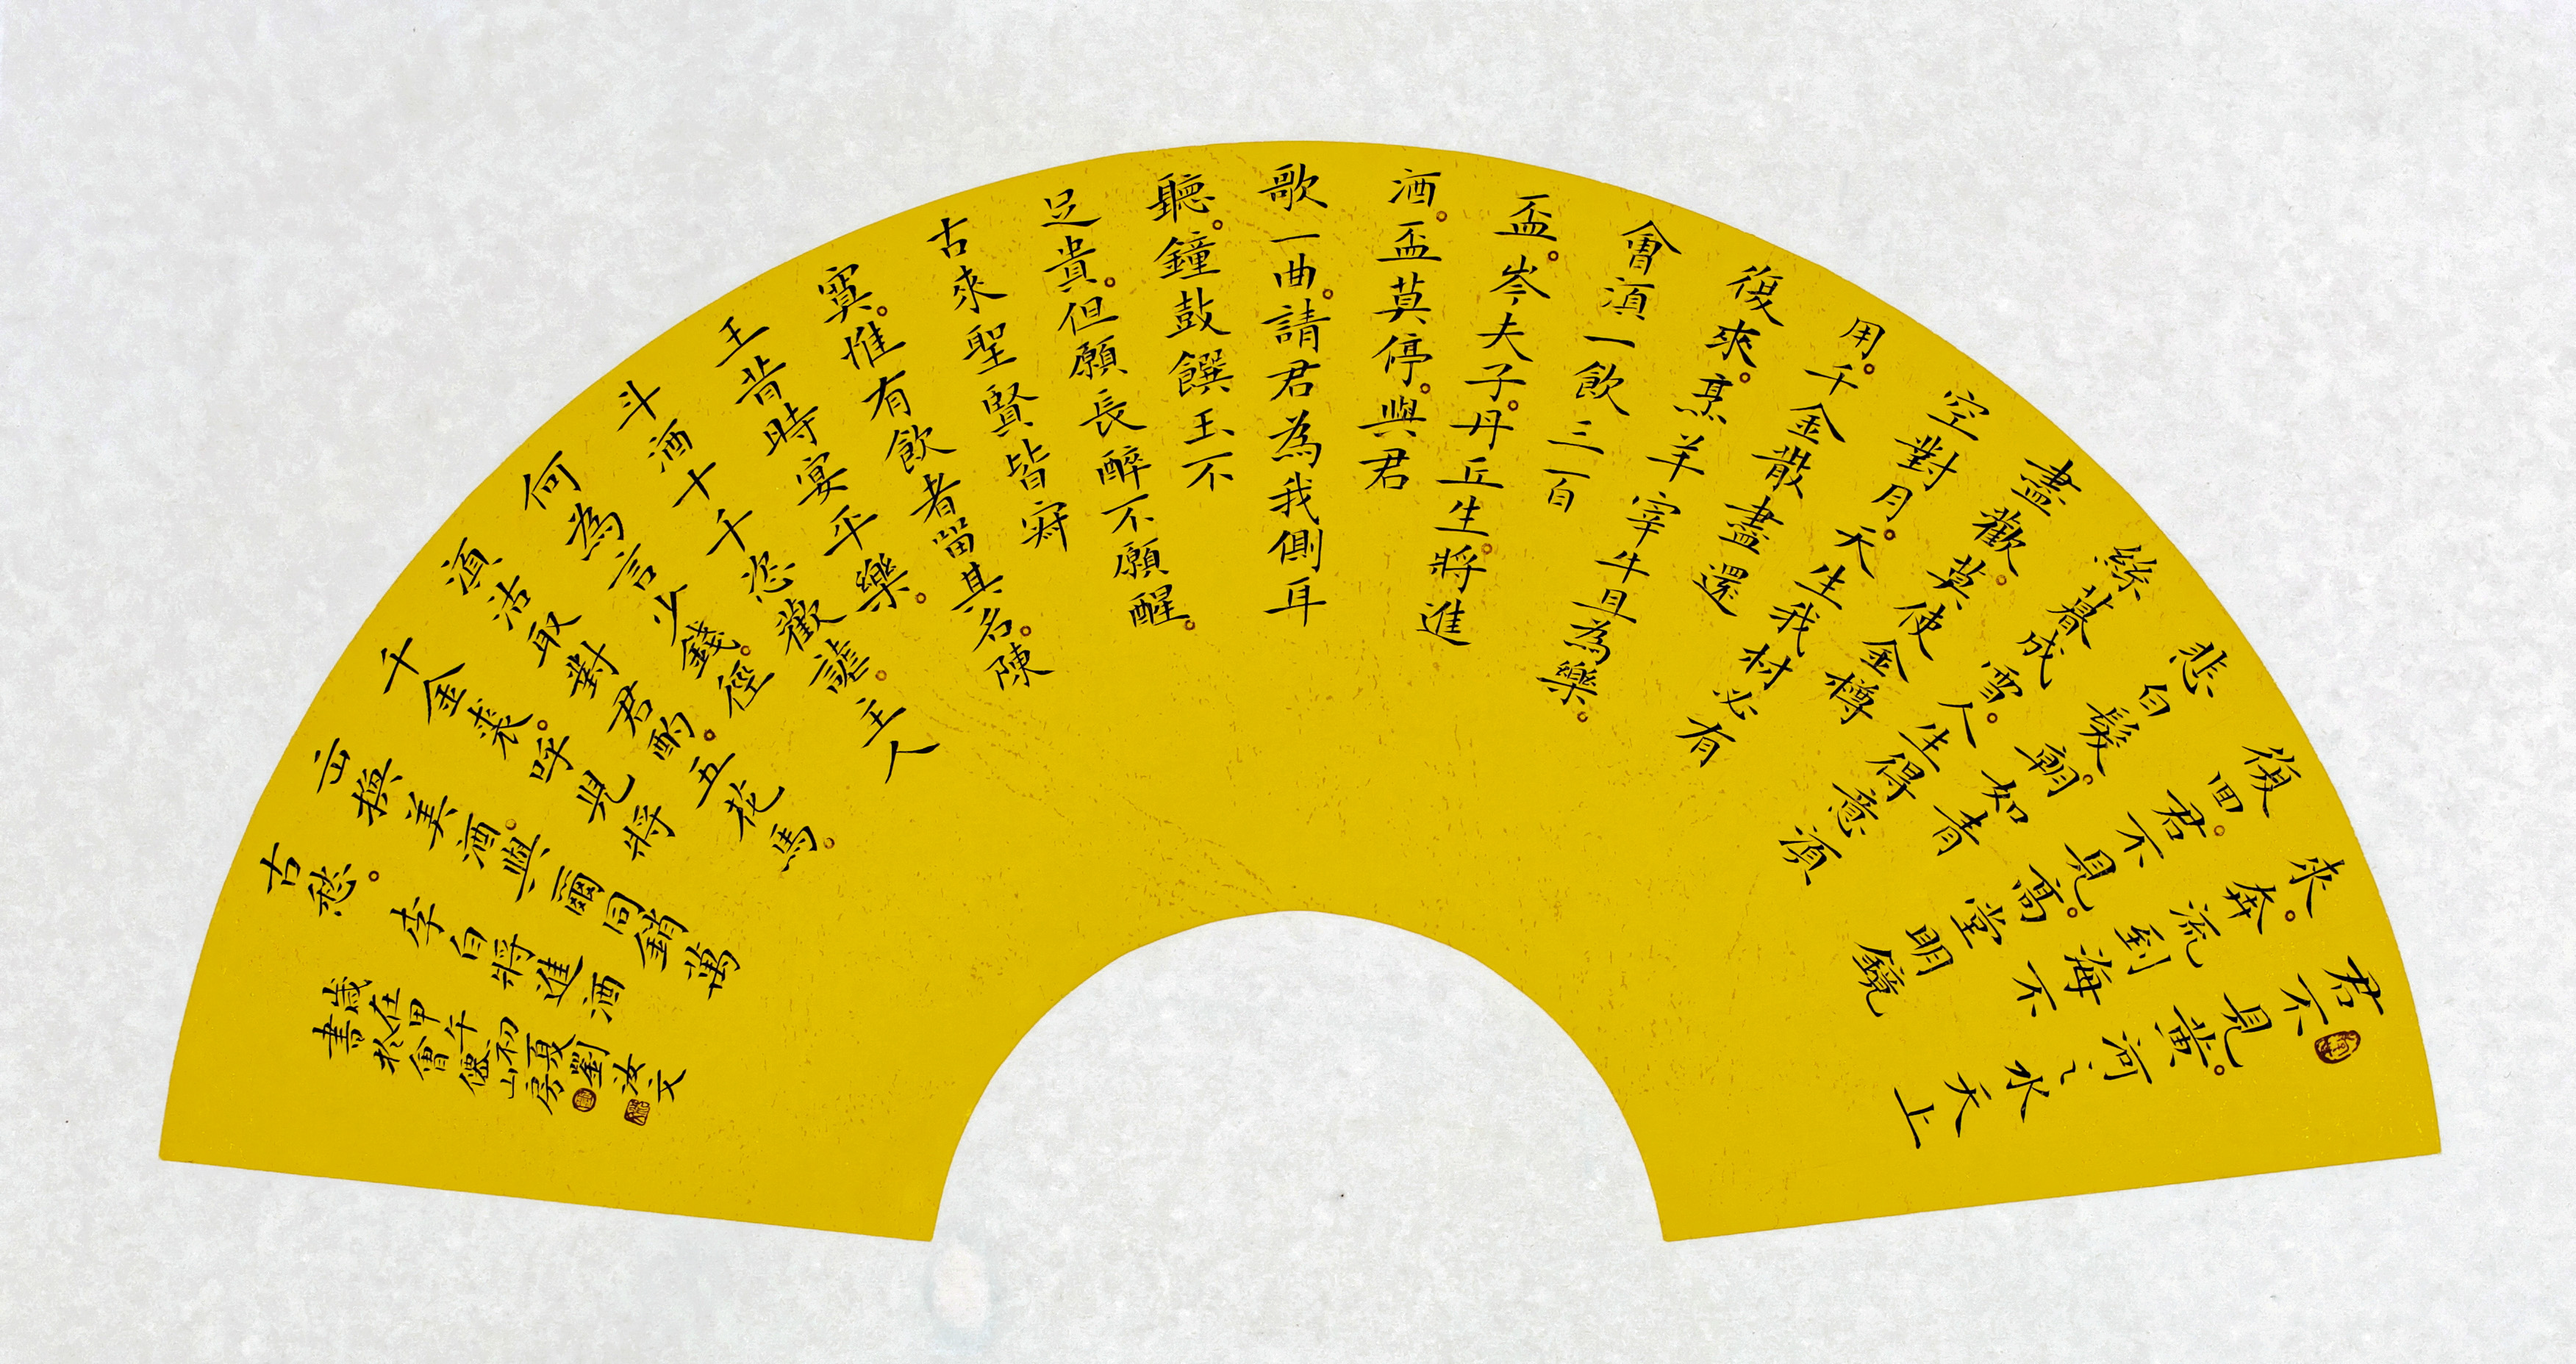 君不見。黃河之水天上
來。奔流到海不
復囬。君不見。高堂明鏡
悲白髮。朝如青
絲暮成雪。人生得意須
盡歡。莫使金樽
空對月。天生我材必有
用。千金散盡還
復來。烹羊宰牛且為樂。
會須一飲三百
盃。岑夫子。丹丘生。將進
酒。盃莫停。與君
歌一曲。請君為我側耳
聽。鐘鼓饌玉不
足貴。但願長醉不願醒。
古來聖賢皆寂
寞。惟有飲者留其名。陳
王昔時宴平樂。
斗酒十千恣歡謔。主人
何為言少錢。徑
須沽取對君酌。五花馬。
千金裘。呼兒將
出換美酒。與爾同銷萬
古愁。李白將進酒
歲在甲午初夏劉汝文
書於會僊山房